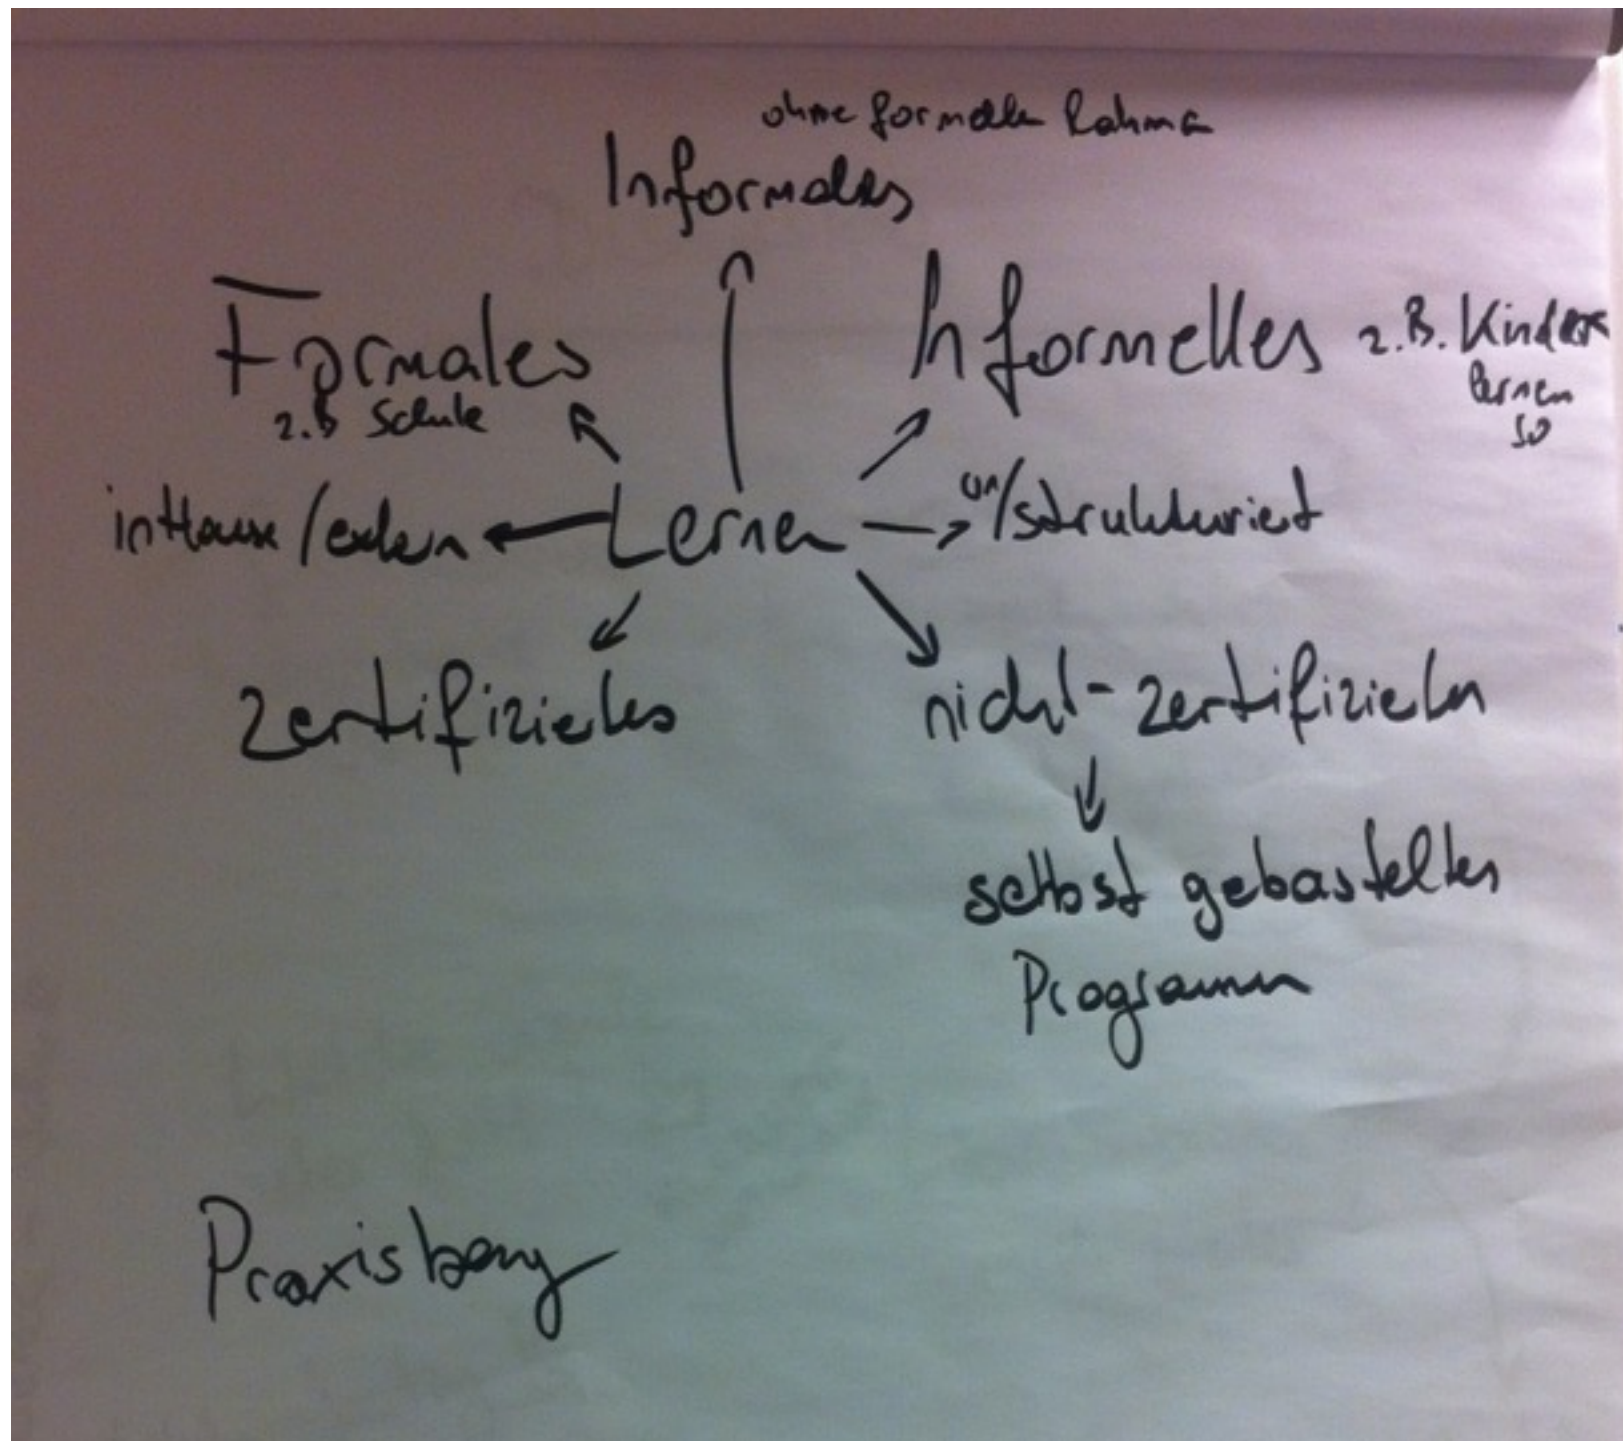 ohne formellen Rahmen
Informales
Formales
z.B Schule
Informelles z.B. Kinder
lernen
so
inHouse / extern
Lernen
un/strukturiert
zertifiziertes
nicht-zertifiziertes
selbst gebasteltes
Programm
Praxisbezug